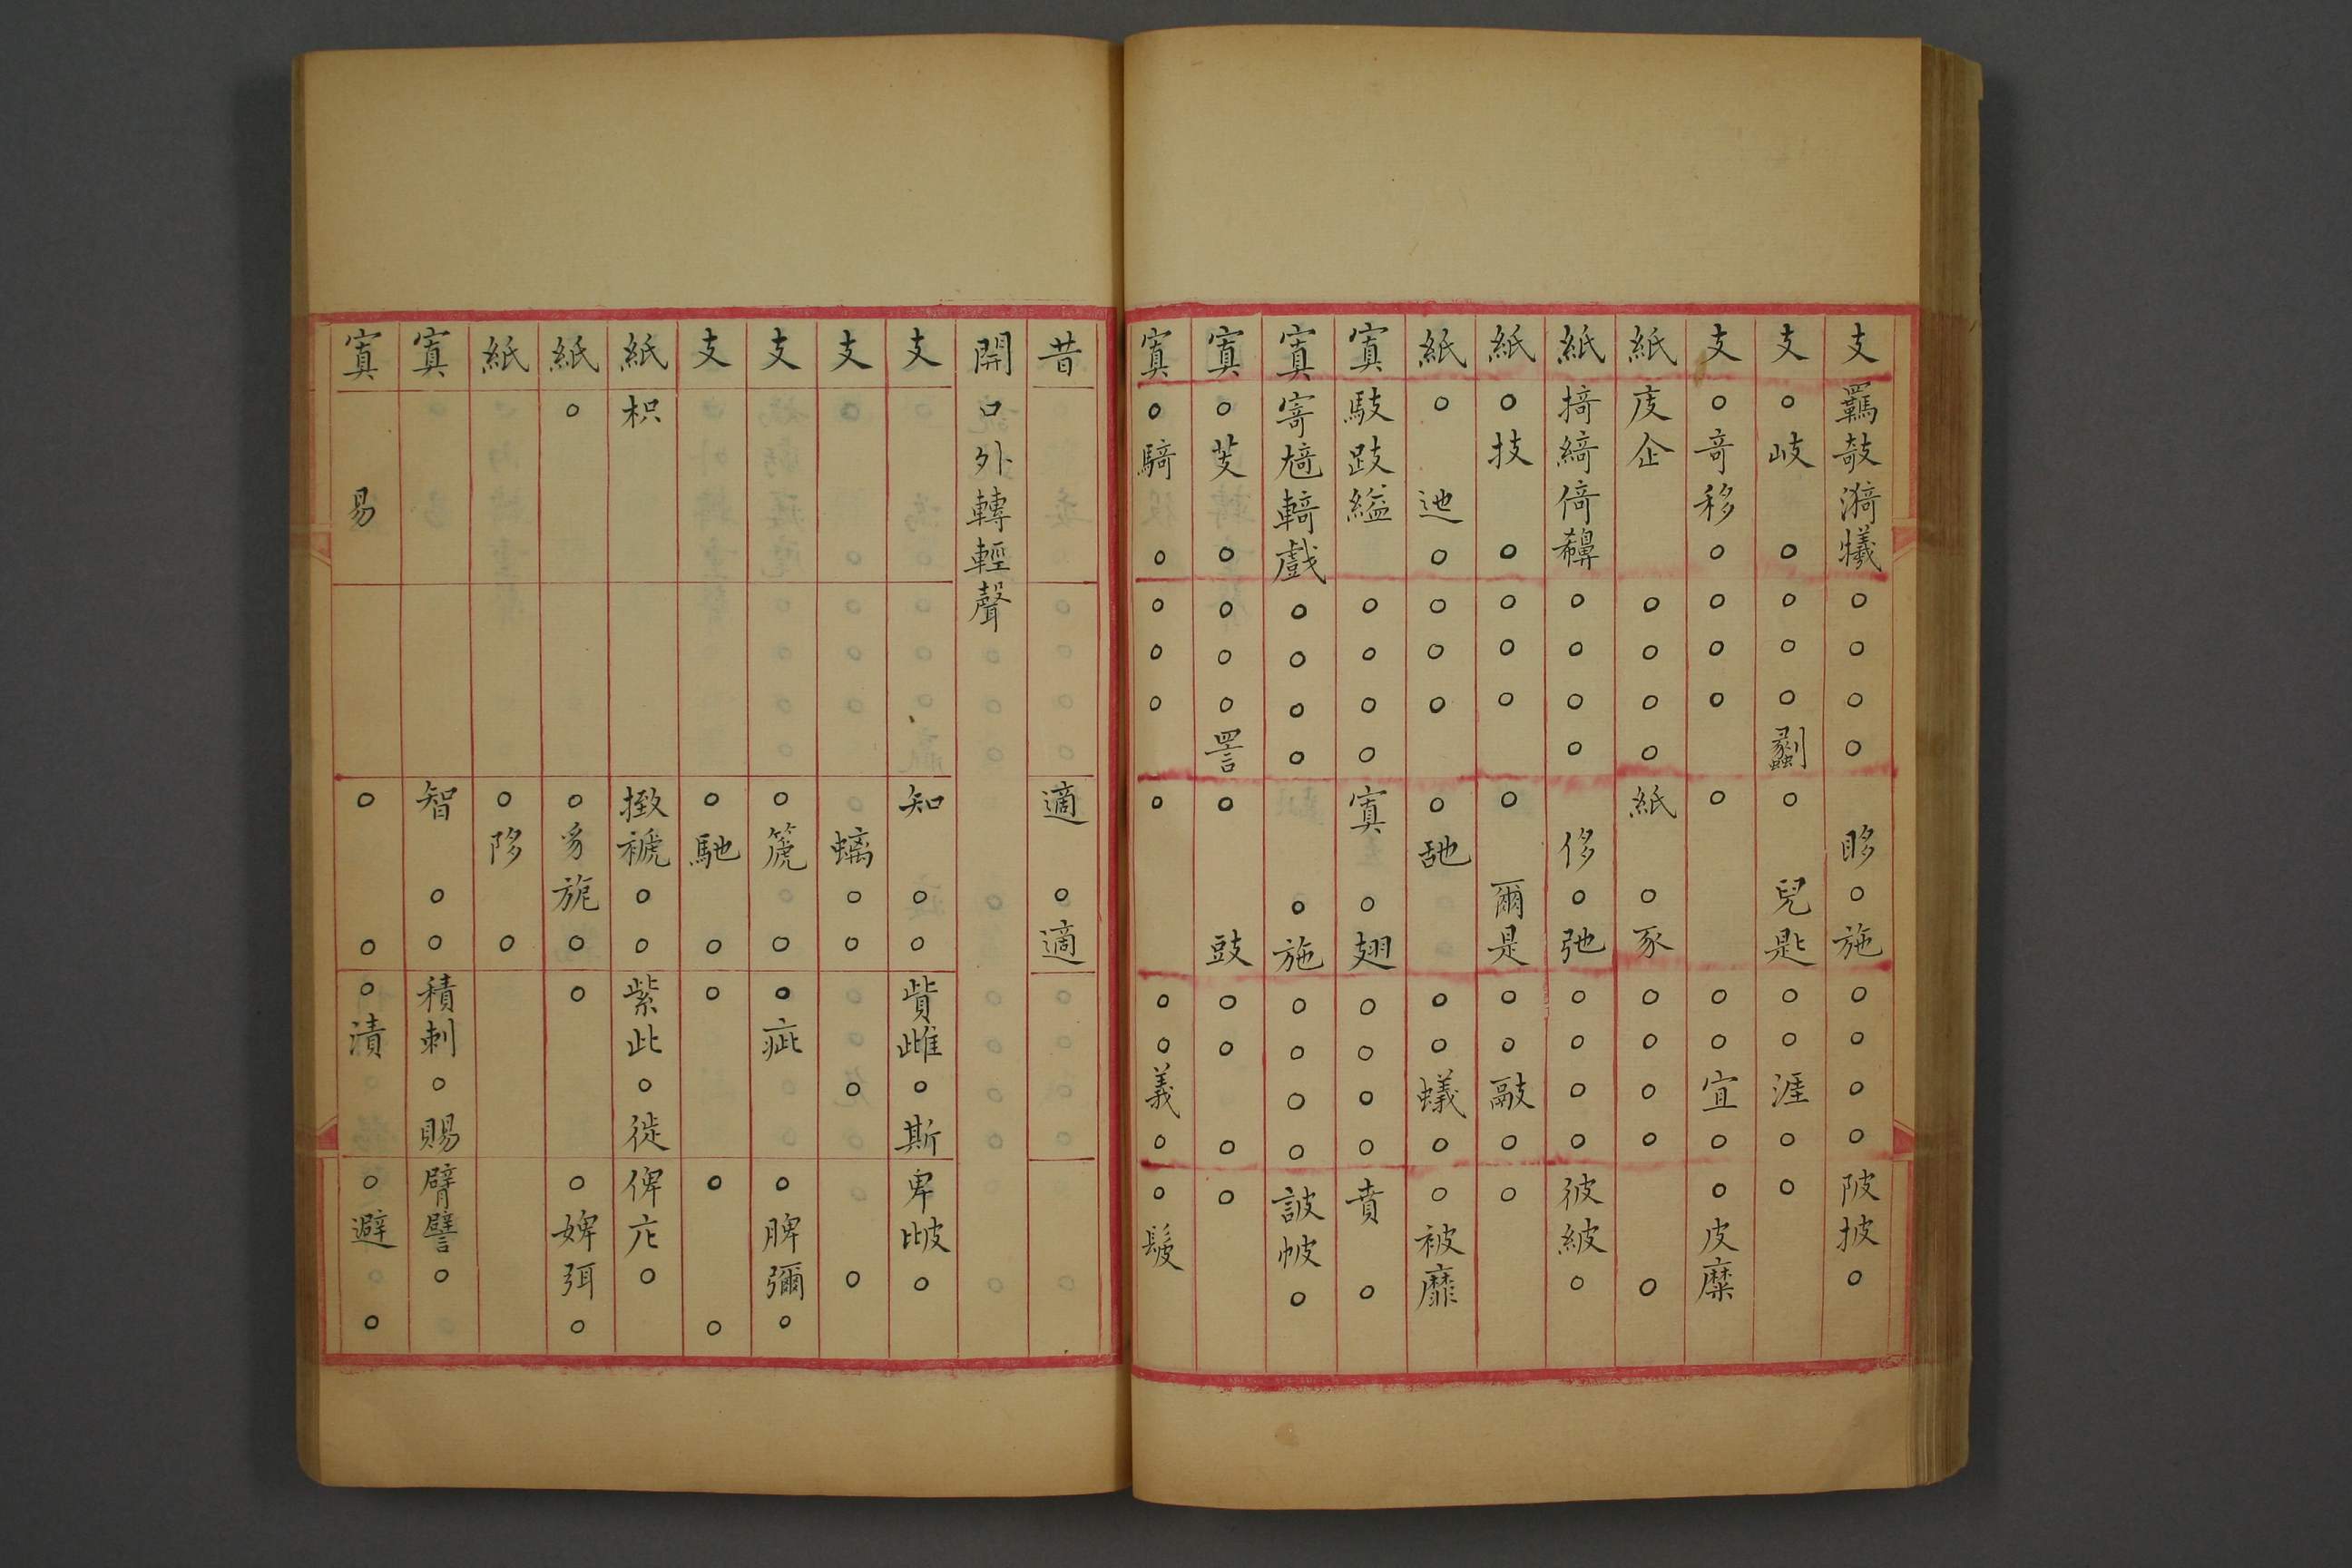 支羈敧漪犧○○○○眵○施○○○○陂披○
支○岐○○○○劙○兒匙○○涯○○
支○奇移○○○○○○○宜○○皮糜
紙庋企○○○○紙○豕○○○○○
紙掎綺倚○○○○侈○弛○○○○彼紴○
紙○技○○○○○爾是○○敽○○
紙○迆○○○○○舓○○蟻○○被靡
寘馶跂縊○○○○寘○翅○○○○賁○
寘寄㩻輢戲○○○○○施○○○○詖帔○
寘○芰○○○○詈○豉○○○○
寘○騎○○○○○○○義○○髲
昔適○適
開口外轉輕聲
支知○○貲雌○斯卑𤿎○
支螭○○○○
支○篪○○疵○脾彌○
支○馳○○○○
紙枳㨖褫○○紫此○徙俾庀○
紙○豸旎○○○婢弭○
紙○陊○
寘智○○積刺○賜臂譬○
寘易○○○漬○避○